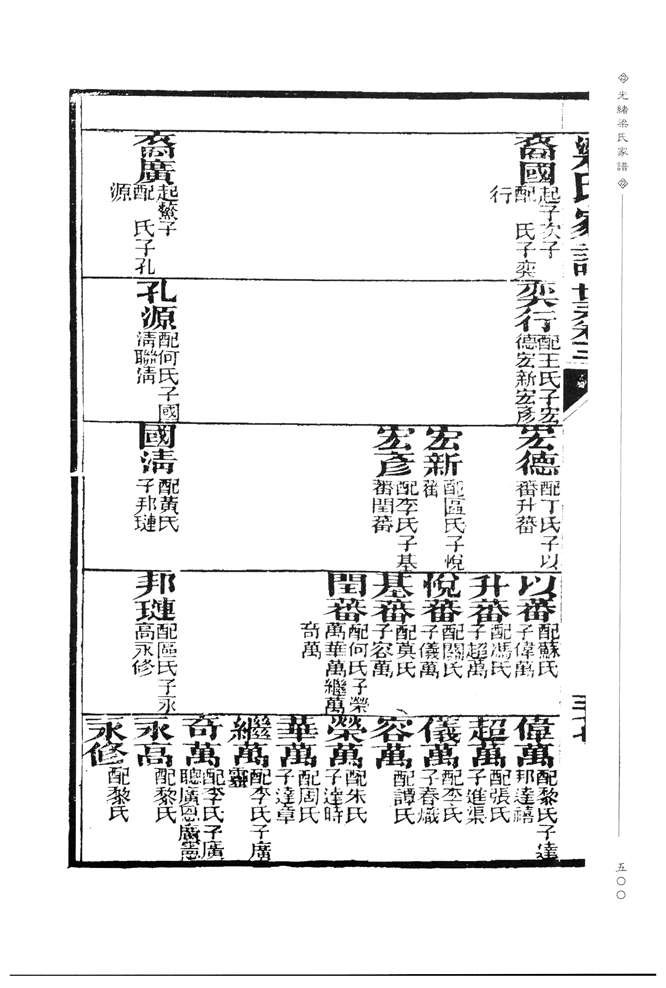 光緒梁氏家譜
五〇〇
梁氏家譜 世系卷三
裔國 起子次子
配 氏子奕
行
裔廣 起鰲子
配 氏子孔
源
奕行 配王氏子宏
德宏新宏彥
孔源 配何氏子國
清聯清
宏德 配丁氏子以
蕃升蕃
宏新 配區氏子悅
蕃
宏彥 配李氏子基
蕃閏蕃
國清 配黃氏
子邦璉
以蕃 配蘇氏
子偉萬
升蕃 配馮氏
子超萬
悅蕃 配關氏
子儀萬
基蕃 配莫氏
子容萬
閏蕃 配何氏子榮
萬華萬繼萬
奇萬
邦璉 配區氏子永
高永修
偉萬 配黎氏子達
邦達禧
超萬 配張氏
子進渠
儀萬 配李氏
子春熾
容萬 配譚氏
榮萬 配朱氏
子達時
華萬 配周氏
子達章
繼萬 配李氏子廣
奇萬 配李氏子廣
聰廣恩廣憲
永高 配黎氏
永修 配黎氏